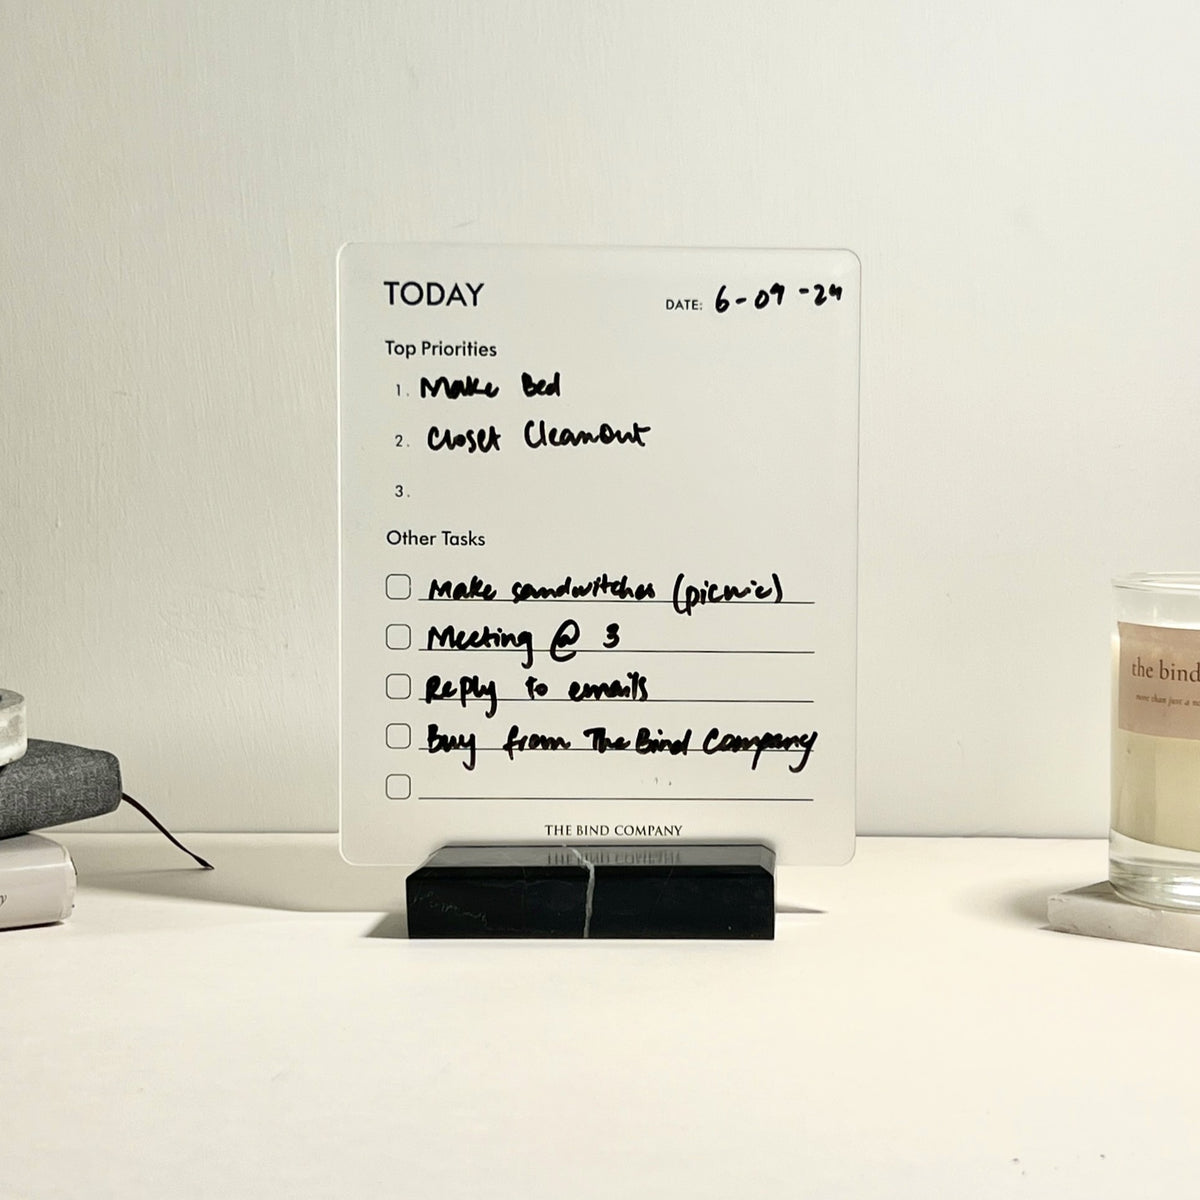 TODAY
DATE: 6-09-24
Top Priorities
1. Make Bed
2. Closet Cleanout
3.
Other Tasks
Make sandwitches (picnic)
Meeting @ 3
Reply to emails
Buy from The Bind Company
THE BIND COMPANY
the bind
more than just a
y